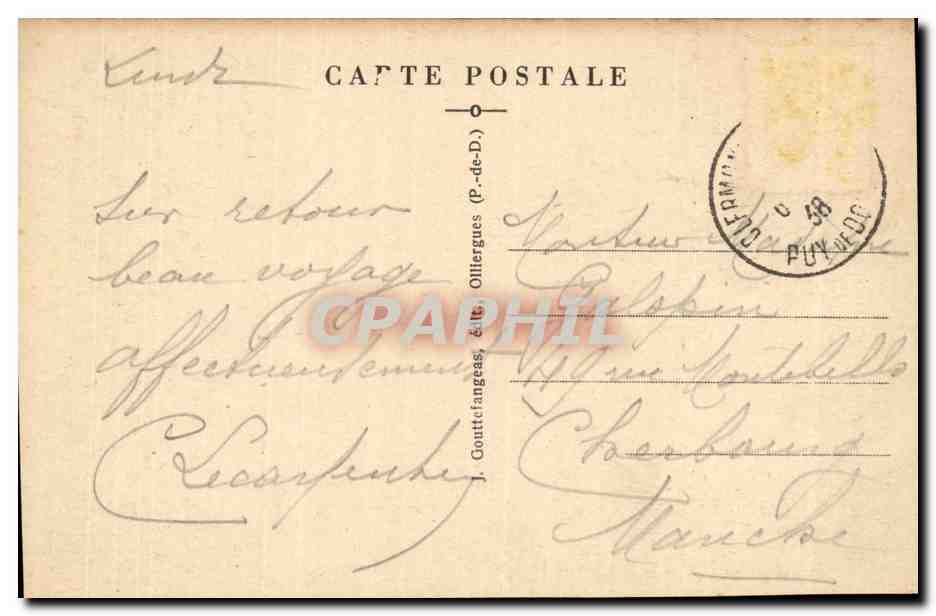 CARTE POSTALE
Lundi
Sur retour
beau voyage
affectueusement
Lecarpentier
J. Gouttefangeas, édit., Olliergues (P.-de-D.)
CLERMON
6 38
PUY DE DO
Monsieur Madame
Galopin
49 rue Montebello
Cherbourg
Manche
CPAPHIL